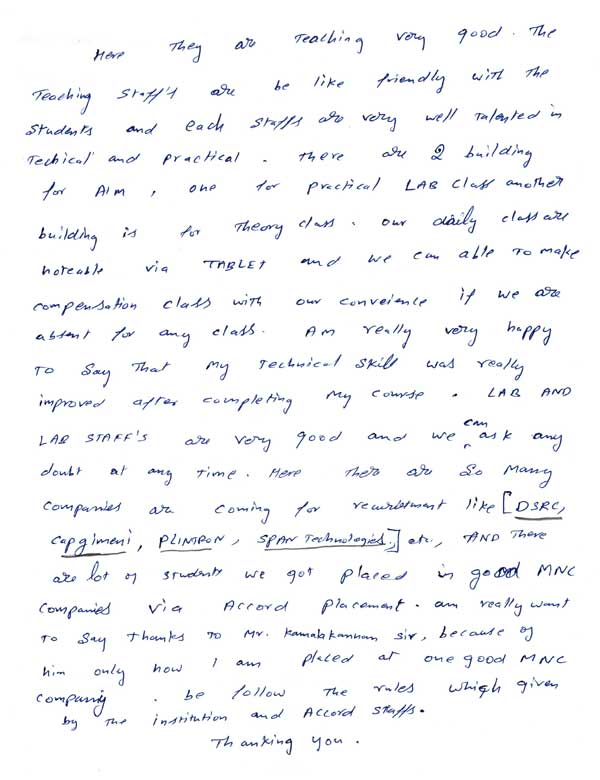 Here They are Teaching very good. The
Teaching staff's are be like friendly with the
students and each staffs are very well Talented in
Techical and practical. there are 2 building
for AIM, one for practical LAB class another
building is for Theory class. our daily class are
noteable via TABLET and we can able To make
compensation class with our conveience if we are
absent for any class. Am really very happy
To Say That my Technical Skill was really
improved after completing my course. LAB AND
LAB STAFF'S are very good and we can ask any
doubt at any Time. Here There are So Many
Companies are coming for recuirtment like [DSRC,
Capgimeni, PLINTRON, SPAN Technologies,] etc., AND There
are lot of students we got placed in good MNC
Companies via Accord placement. am really want
To Say thanks To Mr. Kamalakannan sir, because of
him only now I am placed at one good MNC
company. be follow The rules which given
by The institution and Accord Staffs.
Thanking you.